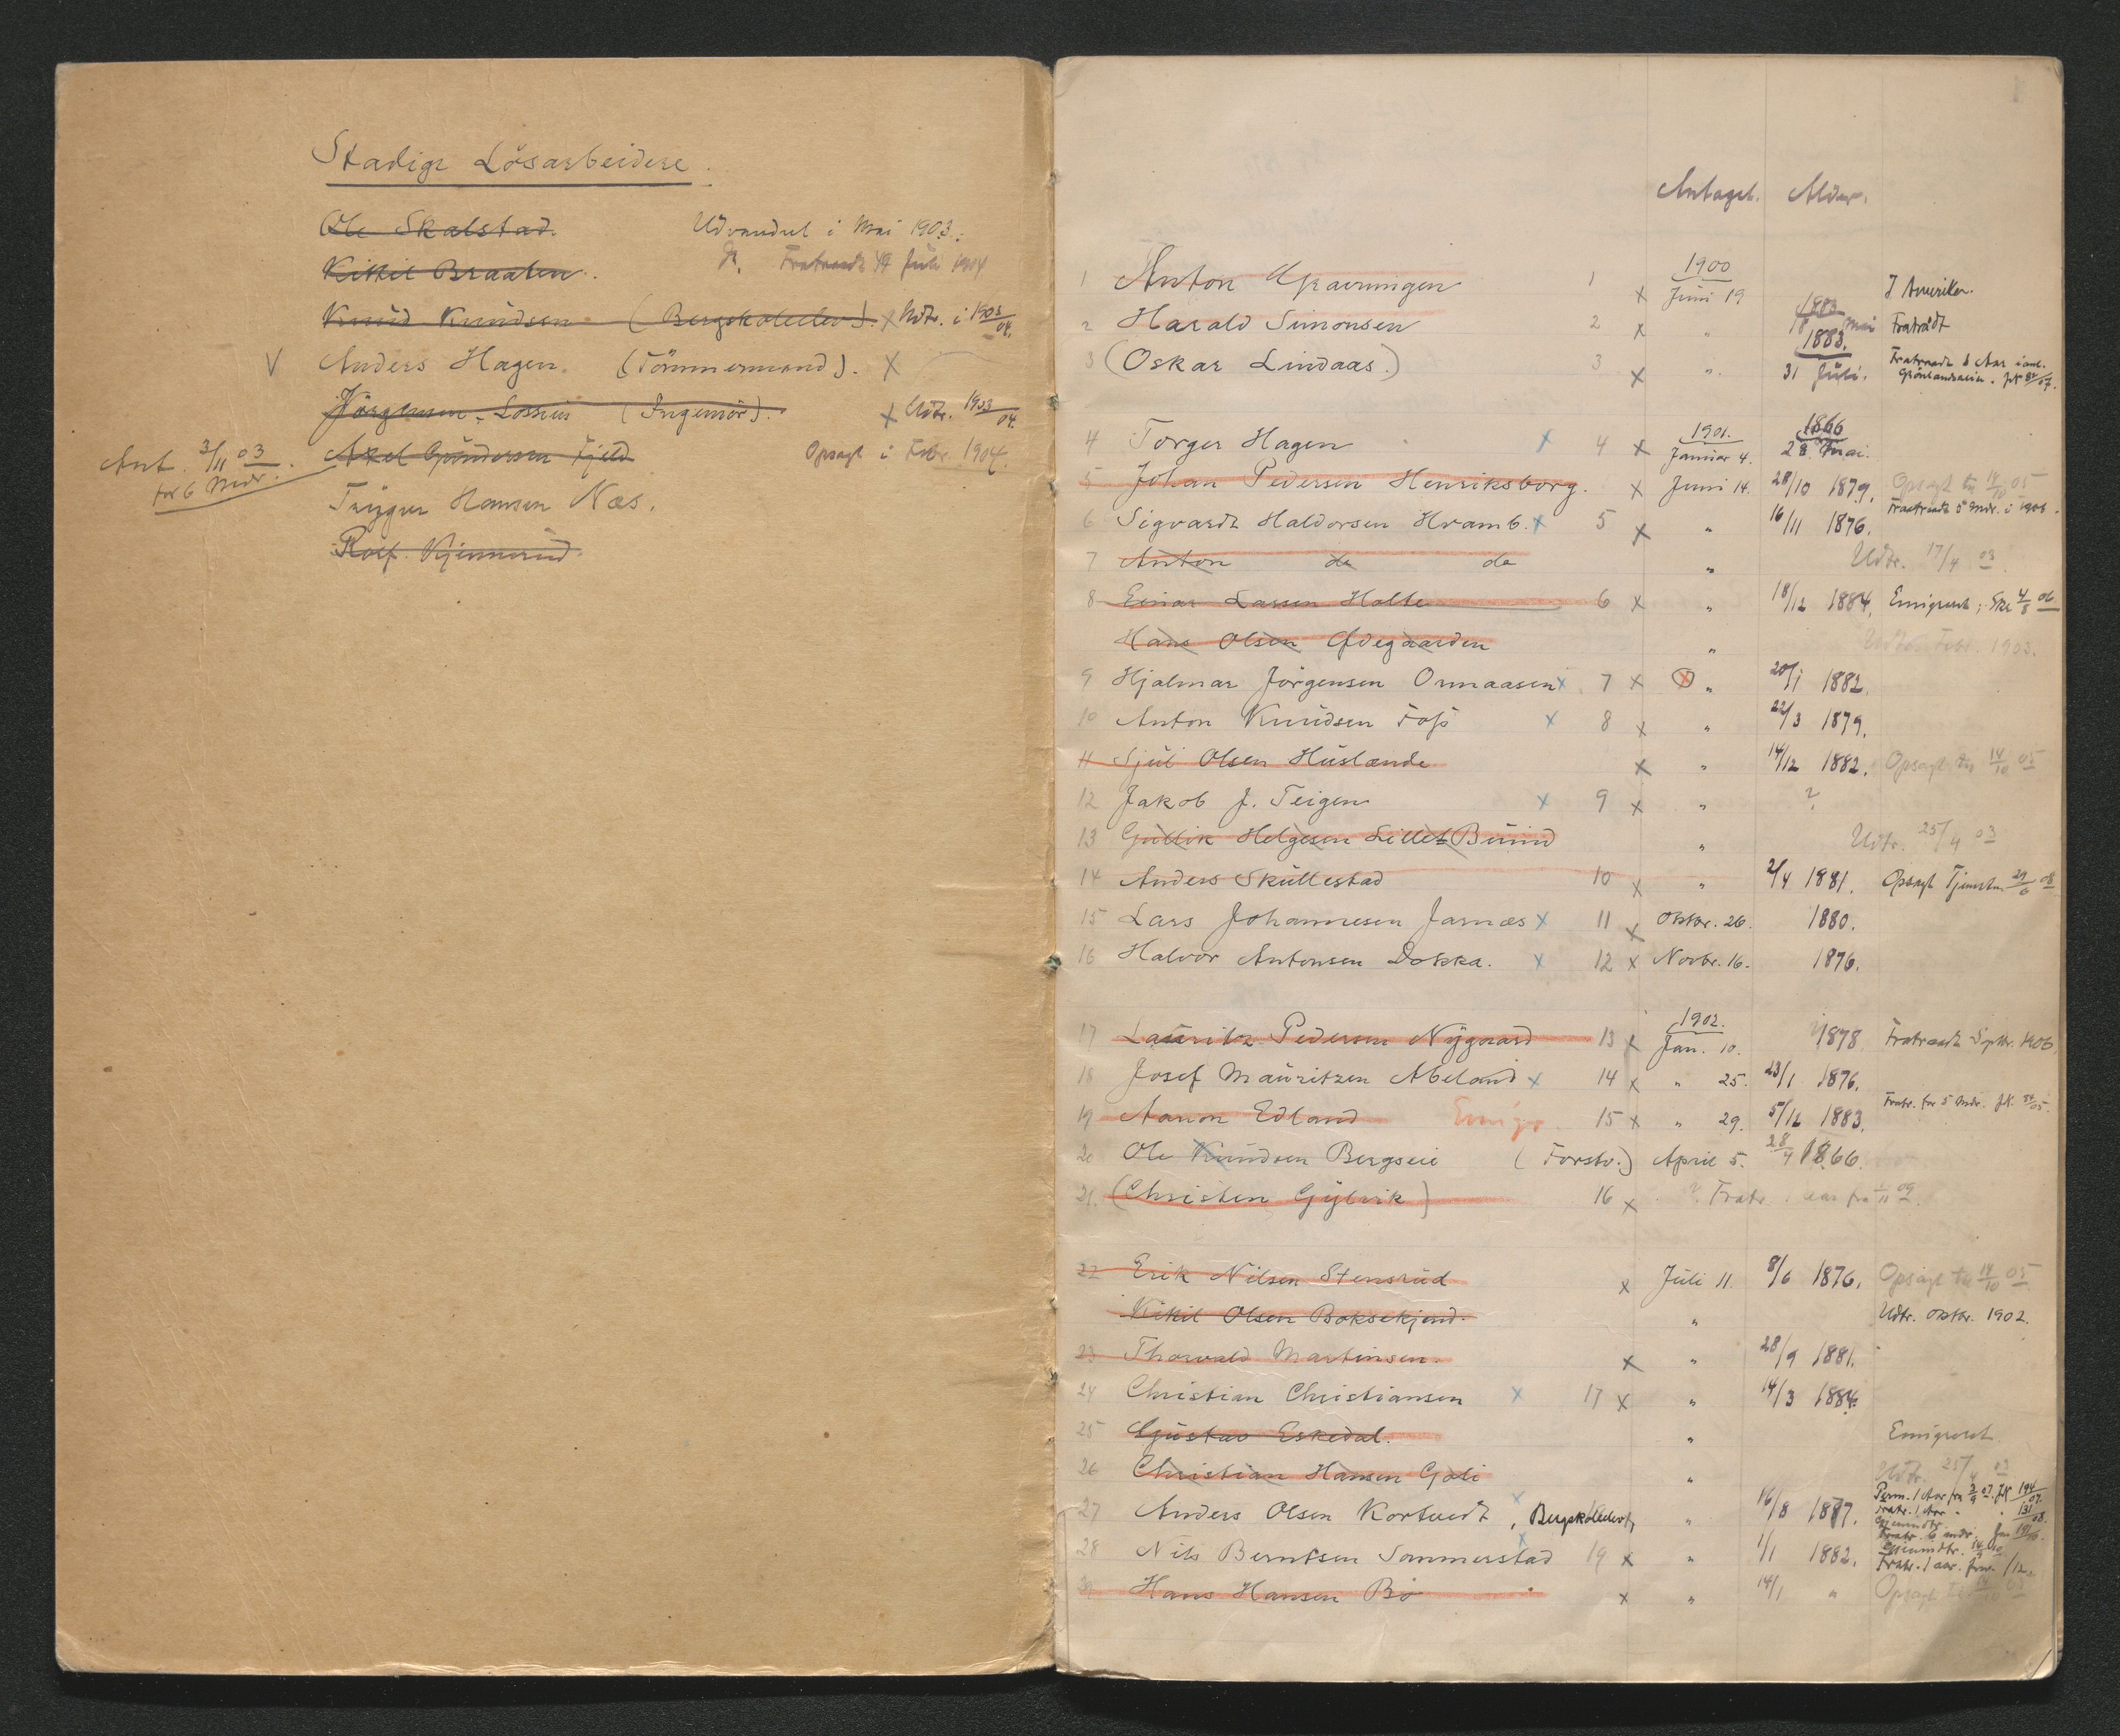 Stadige Lösarbeidere.
Ole Skalstad. Udvandret i Mai 1903.
Kittil Braaten. Fratraadt Juli 1904
Knud Knudsen (Bergskoleelev). x Udtr. i 1903/04.
V Anders Hagen. (Tömmermand). x
Jörgensen Lossius (Ingeniör). x Udtr. 1903/04.
Ant. 3/11 03 for 6 Mdr. Axel Gundersen Fjeld Opsagt i Febr. 1904.
Trygve Hansen Næs.
Rolf Kjennerud.
Antaget. Alder.
1900
1 Anton Gravningen 1 x Juni 19 I Amerika.
1883
2 Harald Simonsen 2 x " 18 Mai Fratrådt
1883.
3 (Oskar Lindaas.) 3 x " 31 Juli. Fratraadt 1 Aar
1901. 1866
4 Torger Hagen x 4 x Januar 4. 28 Mai.
5 Johan Pedersen Henriksborg. x Juni 14. 28/10 1879. Opsagt til 14/10 05
Fratraadt 5 Mdr. i 1906.
6 Sigvardt Haldorsen Hvamb. x 5 x " 16/11 1876.
7 Anton do do " Udtr. 17/4 03
8 Einar Larsen Holte 6 x " 18/12 1884. Emigreret, 4/8 06
Hans Olsen Ødegaarden " Febr. 1903.
9 Hjalmar Jörgensen Ormaasen x 7 x x " 20/1 1882.
10 Anton Knudsen Foss x 8 x " 22/3 1879.
11 Sjul Olsen Huslænde x " 14/12 1882. Opsagt til 14/10 05
12 Jakob J. Teigen x 9 x " ?
13 Gullik Helgesen Lillet Buind " Udtr. 25/4 03
14 Anders Skullestad 10 x " 2/4 1881. Opsagt Tjenesten 29/6 08
15 Lars Johannesen Jarnæs x 11 x Oktbr. 26. 1880.
16 Halvor Antonsen Dokka. x 12 x Novbr. 16. 1876.
1902.
17 Lauritz Pedersen Nygaard 13 x Jan. 10. 1878 Fratraadt Septbr. 1906
18 Josef Mauritzen Abeland x 14 x " 25. 23/1 1876.
19 Aanon Edland Emigr. 15 x " 29. 5/12 1883. Fratr. for 5 Mdr.
20 Ole Knudsen Bergseie (Forstv.) April 5. 28/4 1866.
21. (Christen Gylvik) 16 x ? Fratr. aar fra 1/11 09.
22 Erik Nilsen Stensrud x Juli 11. 8/6 1876. Opsagt til 14/10 05
Kittil Olsen Boksekjend. " Udtr. Oktbr. 1902.
23 Thorvald Martinsen. x " 28/9 1881.
24 Christian Christiansen x 17 x " 14/3 1884.
25 Gustav Eskedal. " Emigreret
26 Christian Hansen Gali " Udtr. 25/4 03
27 Anders Olsen Kortvedt, x Bergskoleelev " 16/8 1887. Perm. 1 Aar fra
28 Nils Berntsen Sommerstad x 19 x " 1/1 1882. Fratr. 1 aar
29 Hans Hansen Bö x " 14/1 " Opsagt til 14/10 05